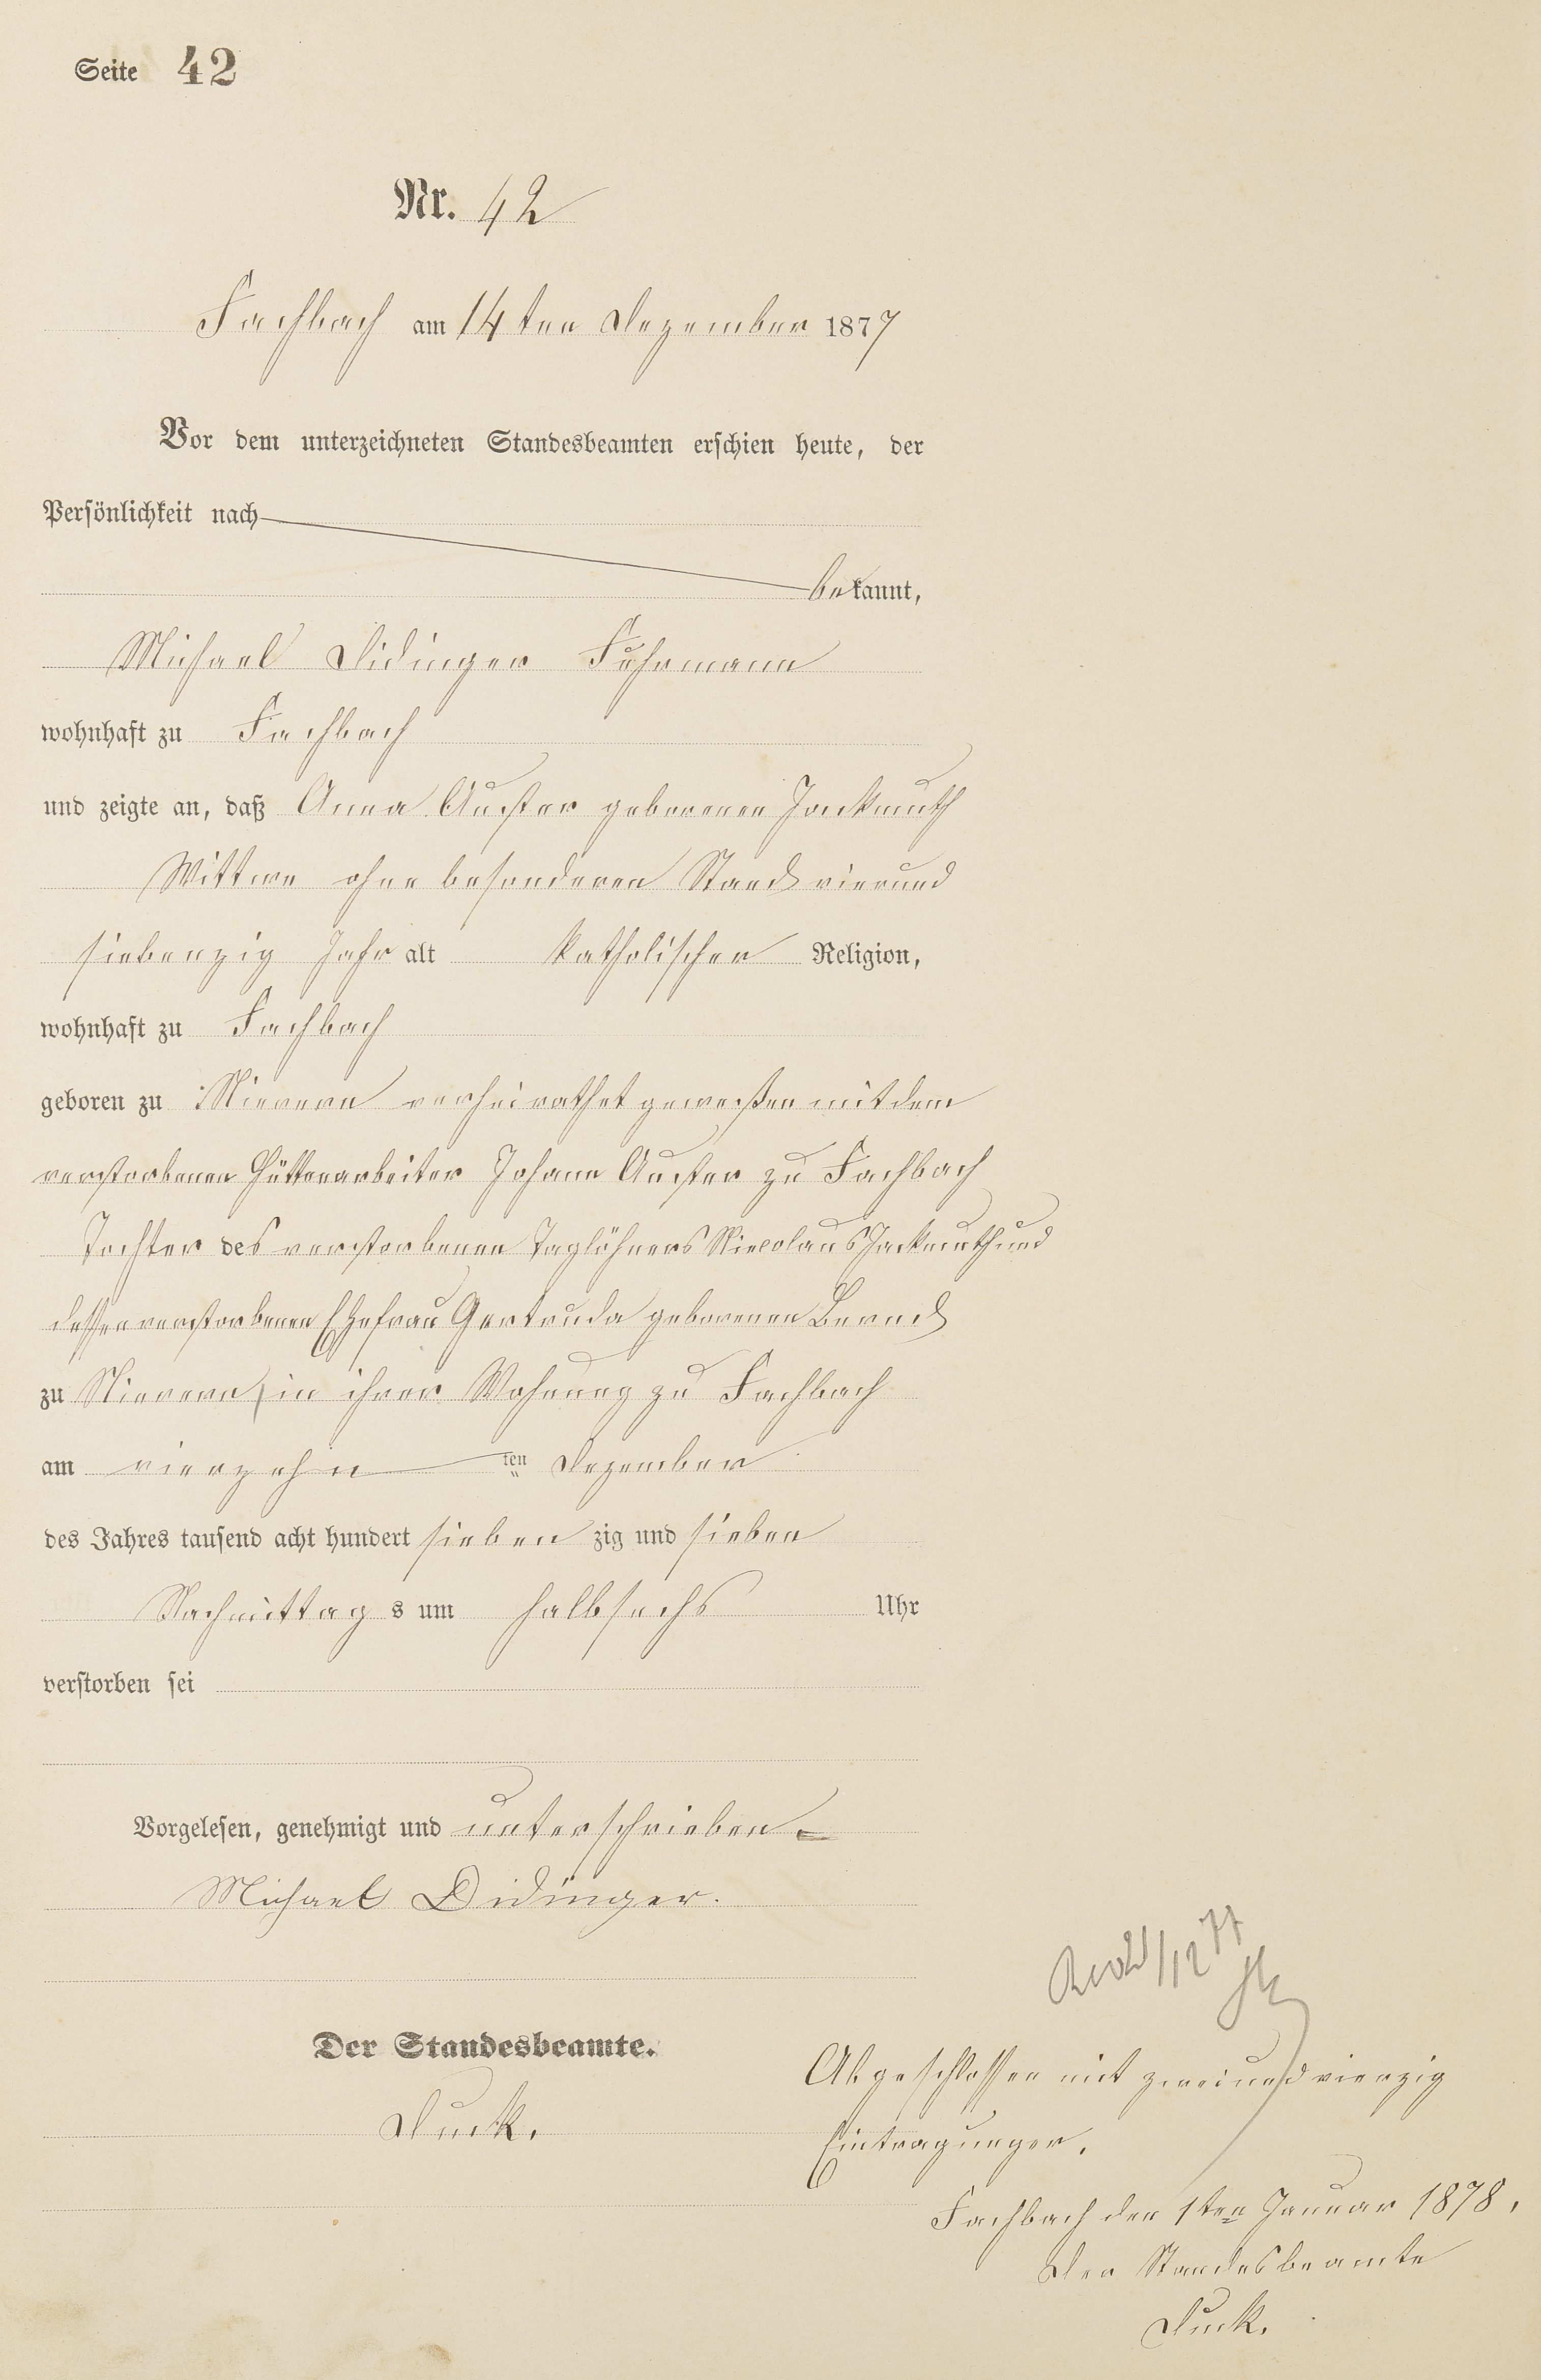 Seite 42
Nr. 42
Fachbach am 14ten Dezember 1877
Vor dem unterzeichneten Standesbeamten erschien heute, der
Persönlichkeit nach
bekannt,
Michael Didinger Fuhrmann
wohnhaft zu Fachbach
und zeigte an, daß Anna Auster geborenen Jackmuth
Wittwe ohne besonderen Stand vierund
siebenzig Jahr alt katholischer Religion,
wohnhaft zu Fachbach
geboren zu Nievern verheirathet geweßen mit dem
verstorbenen Hüttenarbeiter Johann Auster zu Fachbach
Tochter des verstorbenen Taglöhners Nicolaus Jackmuth und
dessen verstorbenen Ehefrau Gertruda geborenen Bernd
zu Nievern, in ihrer Wohnung zu Fachbach
am vierzehn ten Dezember
des Jahres tausend acht hundert sieben zig und sieben
Nachmittag s um halbsechs Uhr
verstorben sei
Vorgelesen, genehmigt und unterschrieben
Michael Didinger.
Der Standesbeamte.
Duck.
/12 77
Abgeschlossen mit zweiundvierzig
Eintragungen.
Fachbach den 1ten Januar 1878.
Der Standesbeamte
Duck.